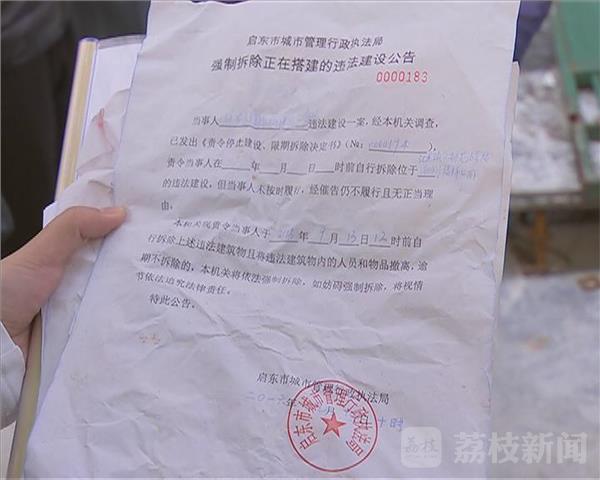 启东市城市管理行政执法局
强制拆除正在搭建的违法建设公告
0000183
当事人 违法建设一案，经本机关调查，
已发出《责令停止建设、限期拆除决定书》（№： ），
责令当事人在 年 月 日 时前自行拆除位于
的违法建设，但当事人未按时履行，经催告仍不履行且无正当理
由。
本机关现责令当事人于 年 9 月 13 日 12 时前自
行拆除上述违法建筑物且将违法建筑物内的人员和物品撤离，逾
期不拆除的，本机关将依法强制拆除，如妨碍强制拆除，将视情
节依法追究法律责任。
特此公告。
启东市城市管理行政执法局
二〇一六年 月 十时
启东市城市管理行政执法局
荔枝
荔枝新闻